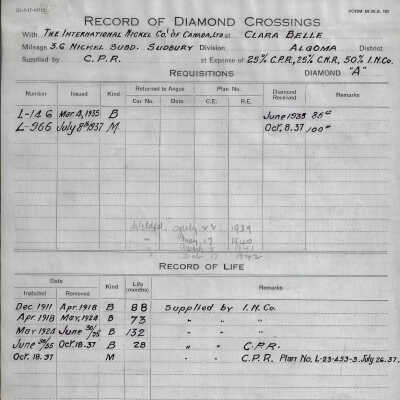 RECORD OF DIAMOND CROSSINGS
With THE INTERNATIONAL NICKEL CO. OF CANADA, LTD at CLARA BELLE
Mileage 3.6 NICKEL SUBD. SUDBURY Division ALGOMA District
Supplied by C.P.R. at Expense of 25% C.P.R., 25% C.N.R., 50% I.N.Co.
REQUISITIONS DIAMOND "A"
Number Issued Kind Returned to Angus Plan No. Diamond Received Remarks
Car No. Date C.E. R.E.
L-146 Mar. 4, 1935 B June 1935 85#
L-966 July 8th 1937 M Oct. 8.37 100#
Welded July 1939
" 1940
" 1942
RECORD OF LIFE
Date Kind Life (months) Remarks
Installed Removed
Dec. 1911 Apr. 1918 B 88 Supplied by I.N.Co.
Apr. 1918 May, 1924 B 73 " " "
May 1924 June 30/35 B 132 " " "
June 30/35 Oct. 18.37 B 28 " " C.P.R.
Oct. 18.37 M C.P.R. Plan No. L-23-A53-3. July 26.37.